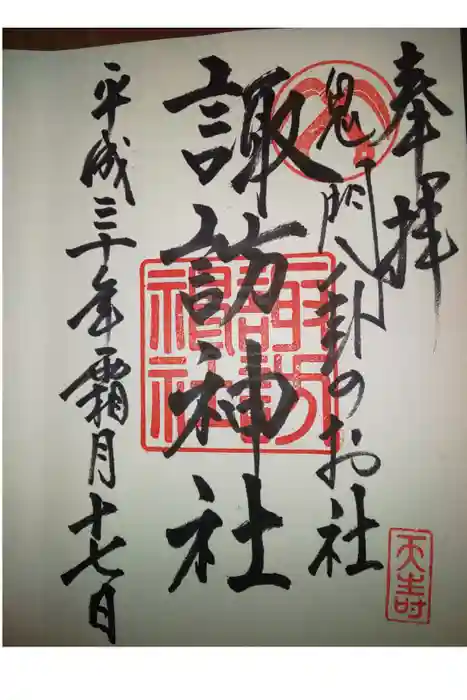 奉拝
鬼門八卦のお社
諏訪神社
諏訪神社
平成三十年霜月十七日